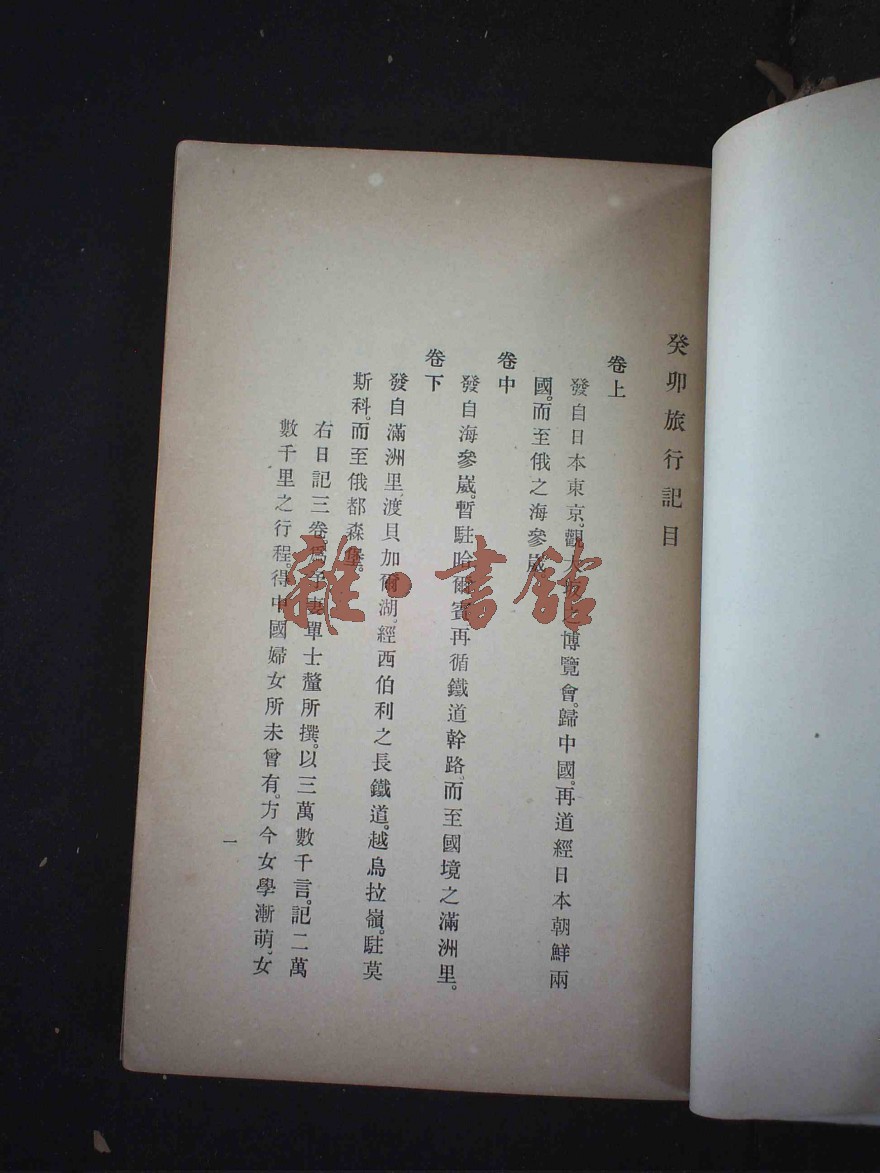 癸卯旅行記目
卷上
發自日本東京。觀大坂之博覽會。歸中國。再道經日本朝鮮兩
國。而至俄之海參崴。
卷中
發自海參崴。暫駐哈爾賓再循鐵道幹路。而至國境之滿洲里。
卷下
發自滿洲里、渡貝加爾湖。經西伯利之長鐵道。越烏拉嶺。駐莫
斯科。而至俄都森堡。
右日記三卷。爲予妻單士釐所撰。以三萬數千言。記二萬
數千里之行程。得中國婦女所未曾有。方今女學漸萌、女
一
雜·書館